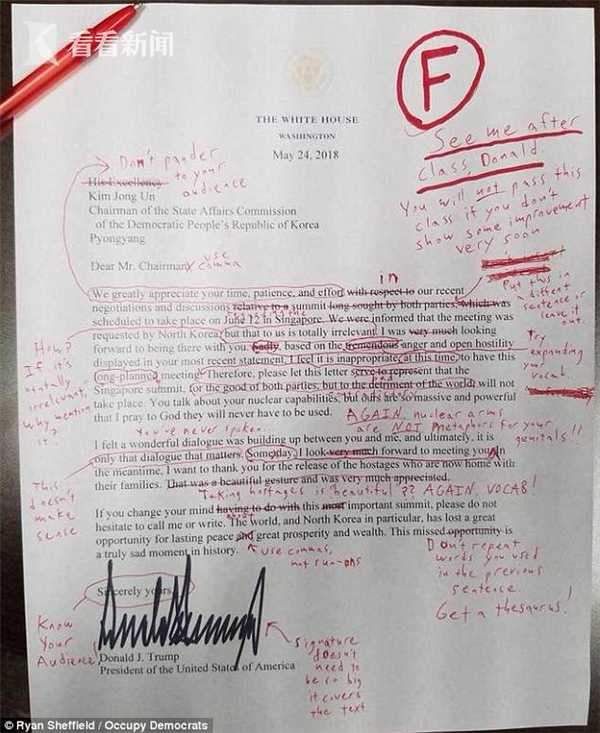 看看新闻
F
See me after
class, Donald.
You will not pass this
class if you don't
show some improvement
very soon
THE WHITE HOUSE
WASHINGTON
May 24, 2018
Don't pander
to your
audience
His Excellency
Kim Jong Un
Chairman of the State Affairs Commission
of the Democratic People's Republic of Korea
Pyongyang
Dear Mr. Chairman
use
comma
in
We greatly appreciate your time, patience, and effort with respect to our recent
negotiations and discussions relative to a summit long sought by both parties, which was
scheduled to take place on June 12 in Singapore. We were informed that the meeting was
requested by North Korea, but that to us is totally irrelevant. I was very much looking
forward to being there with you. Sadly, based on the tremendous anger and open hostility
displayed in your most recent statement, I feel it is inappropriate, at this time, to have this
long-planned meeting. Therefore, please let this letter serve to represent that the
Singapore summit, for the good of both parties, but to the detriment of the world, will not
take place. You talk about your nuclear capabilities, but ours are so massive and powerful
that I pray to God they will never have to be used.
Put this in
a different
sentence or
leave it
out.
Try
expanding
your
vocab.
How?
If it's
totally
irrelevant,
why mention
it?
AGAIN, nuclear arms
are NOT metaphors for your
genitals!!
You've never spoken...
I felt a wonderful dialogue was building up between you and me, and ultimately, it is
only that dialogue that matters. Some day, I look very much forward to meeting you. In
the meantime, I want to thank you for the release of the hostages who are now home with
their families. That was a beautiful gesture and was very much appreciated.
This
doesn't
make
sense
Taking hostages is beautiful?? AGAIN, VOCAB!
If you change your mind having to do with this most important summit, please do not
about
hesitate to call me or write. The world, and North Korea in particular, has lost a great
opportunity for lasting peace and great prosperity and wealth. This missed opportunity is
a truly sad moment in history.
use commas,
not run-ons
Don't repeat
words you used
in the previous
sentence.
Get a thesaurus!
Sincerely yours,
Know
Your
Audience
Donald J. Trump
President of the United States of America
Signature
doesn't
need to
be so big
it covers
the text
© Ryan Sheffield / Occupy Democrats